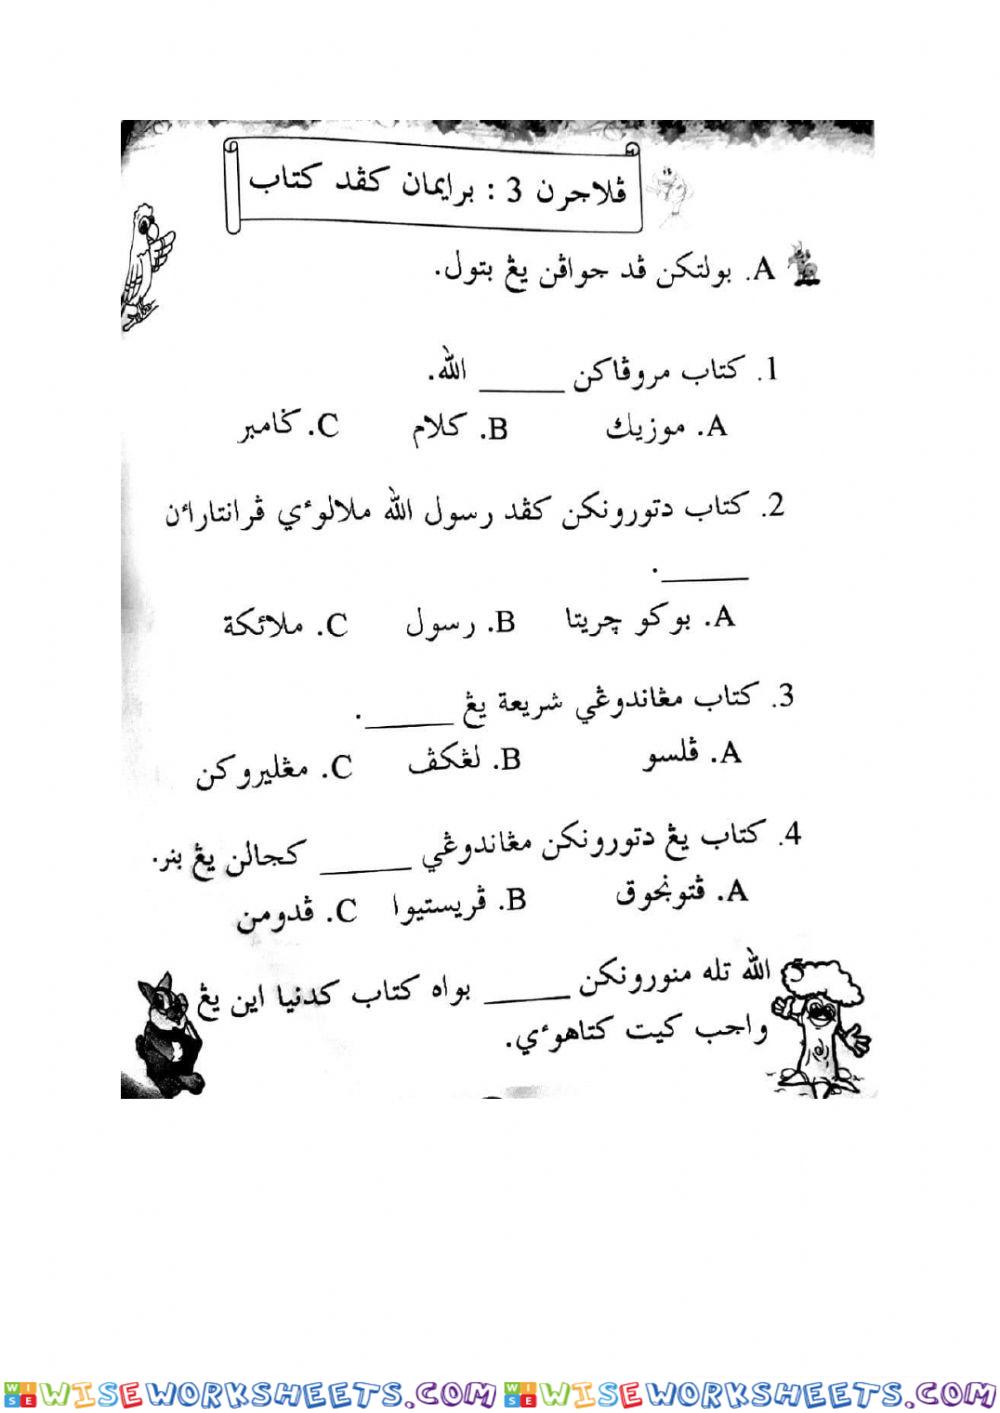 ڤلاجرن 3 : برايمان كڤد كتاب
A. بولتكن ڤد جواڤن يڠ بتول.
1. كتاب مروڤاكن ______ الله.
A. موزيك B. كلام C. ݢامبر
2. كتاب دتورونكن كڤد رسول الله ملالوءي ڤرانتاراءن
______.
A. بوكو چريتا B. رسول C. ملائكة
3. كتاب مڠاندوڠي شريعة يڠ ______.
A. ڤلسو B. لڠكڤ C. مڠليروكن
4. كتاب يڠ دتورونكن مڠاندوڠي ______ كجالن يڠ بنر.
A. ڤتونجوق B. ڤريستيوا C. ڤدومن
الله تله منورونكن ______ بواه كتاب كدنيا اين يڠ
واجب كيت كتاهوءي.
WISEWORKSHEETS.COM WISEWORKSHEETS.COM